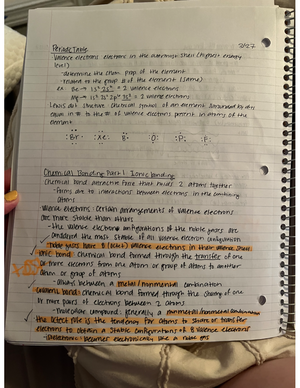 Periodic Table
2/27
- Valence electrons: electrons in the outermost shell (highest energy
level)
- determine the chem. prop. of the element
- related to the group # of the element (same)
ex. Be → 1s² 2s² = 2 valence electrons
Mg → 1s² 2s² 2p⁶ 3s² = 2 valence electrons
Lewis dot structure: chemical symbol of an element surrounded by dots
equal in # to the # of valence electrons present in atoms of the
element
:Br· :Xe: B· O: :P: :F:
Chemical Bonding Part 1: Ionic bonding
Chemical bond: attractive force that holds 2 atoms together
- forms due to interactions between electrons in the combining
atoms
Valence electrons: certain arrangements of valence electrons
are more stable than others
- the valence electron configurations of the noble gases are
considered the most stable of all valence electron configurations
Noble gases have 8 (octet) valence electrons in their valence shell
Ionic bond: chemical bond formed through the transfer of one
or more electrons from one atom or group of atoms to another
atom or group of atoms
- always between a metal/nonmetal combination
Covalent bond: chemical bond formed through the sharing of one
or more pairs of electrons between 2 atoms
- molecular compound: generally a nonmetal/nonmetal combination
the octet rule is the tendency for atoms to share or transfer
electrons to obtain a stable configurations of 8 valence electrons
electronically like a noble gas